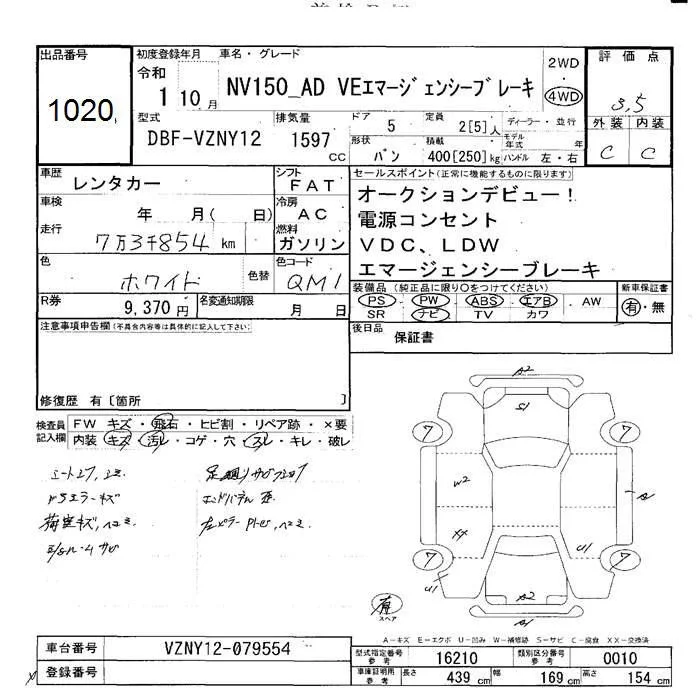 出品番号
1020
初度登録年月
令和
1 10 月
車名・グレード
NV150_AD VEエマージェンシーブレーキ
2WD
4WD
評価点
3.5
外装 内装
C C
型式
DBF-VZNY12
排気量
1597
cc
ドア
5
定員
2[5]人
ディーラー・並行
形状
バン
積載
400[250]kg
モデル年式 年
ハンドル 左・右
車歴
レンタカー
シフト
FAT
車検
年 月( 日)
冷房
AC
走行
7万3千854 km
燃料
ガソリン
色
ホワイト
色替
色コード
QM1
R券
9,370円
名変通知期限
月 日
セールスポイント(正常に機能するものに限ります)
オークションデビュー!
電源コンセント
VDC、LDW
エマージェンシーブレーキ
装備品(純正品に限り○をつけてください)
PS・PW・ABS・エアB・AW
SR ナビ TV カワ
新車保証書
有・無
後日品
保証書
注意事項申告欄(不具合内容等は具体的に記入して下さい)
修復歴 有〔箇所 〕
検査員記入欄
FW キズ・飛石・ヒビ割・リペア跡・×要
内装 キズ・汚レ・コゲ・穴・スレ・キレ・破レ
荷室キズ,ヘコミ
A2
S1
7
7
W2
A
XX
U1
7
7
U1
A2
A1
有
スペア
A-キズ E-エクボ U-凹み W-補修跡 S-サビ C-腐食 XX-交換済
車台番号
VZNY12-079554
登録番号
型式指定番号
参考
16210
類別区分番号
参考
0010
車庫証明用
参考
長さ
439 cm
幅
169 cm
高さ
154 cm